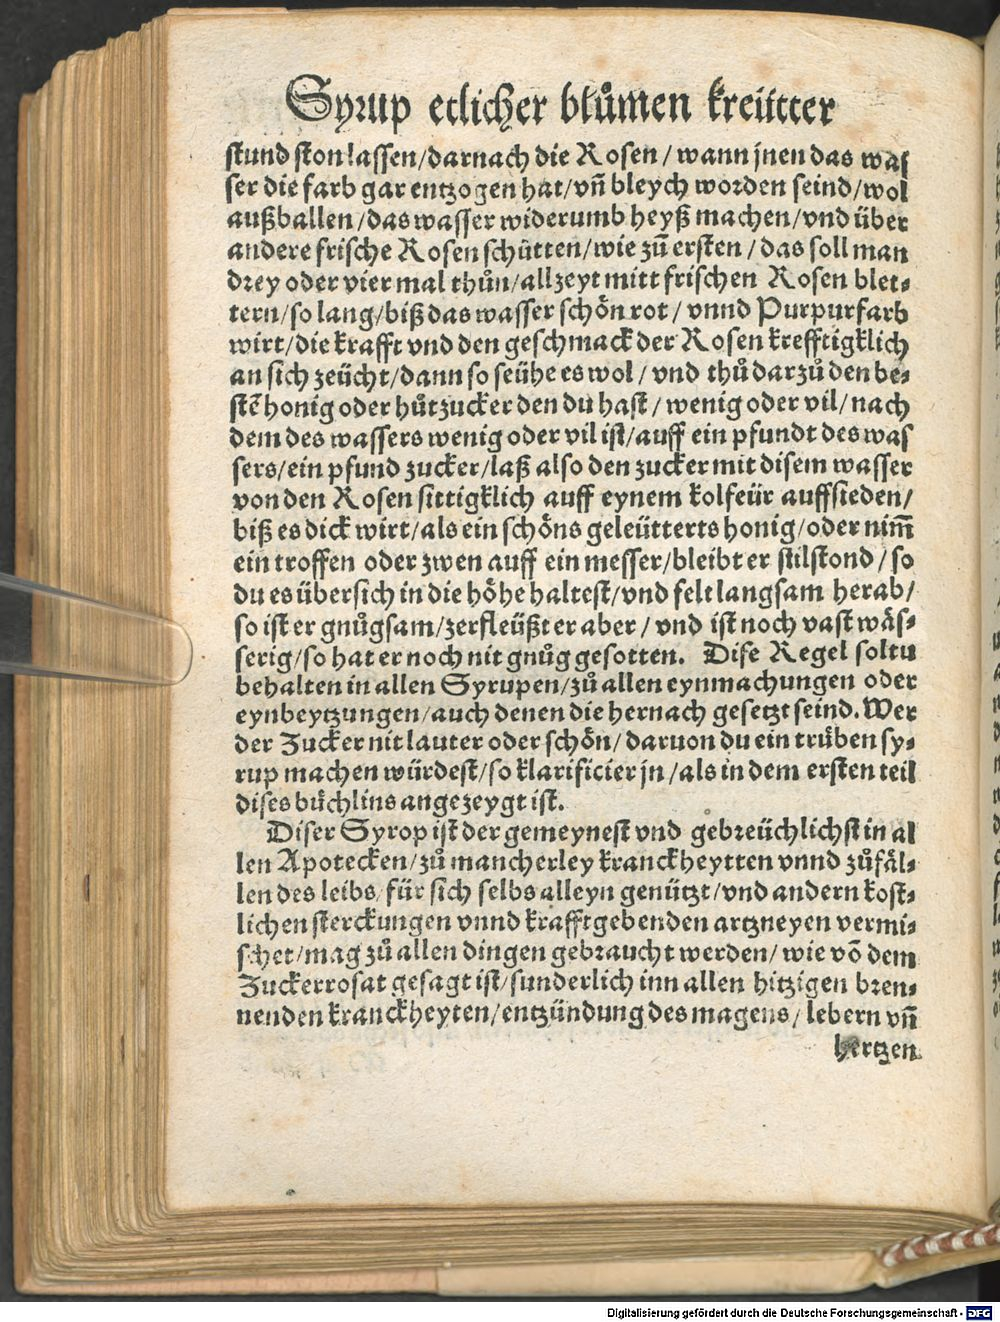 Syrup etlicher blůmen kreütter
stund ston lassen/darnach die Rosen/wann jnen das was
ser die farb gar entzogen hat/vñ bleych worden seind/wol
außballen/das wasser widerumb heyß machen/vnd über
andere frische Rosen schütten/wie zů ersten/das soll man
drey oder vier mal thůn/allzeyt mitt frischen Rosen blet⸗
tern/so lang/biß das wasser schön rot/vnnd Purpurfarb
wirt/die krafft vnd den geschmack der Rosen krefftigklich
an sich zeücht/dann so seühe es wol/vnd thů darzů den be⸗
stẽ honig oder hůtzucker den du hast/wenig oder vil/nach
dem des wassers wenig oder vil ist/auff ein pfundt des was
sers/ein pfund zucker/laß also den zucker mit disem wasser
von den Rosen sittigklich auff eynem kolfeür auffsieden/
biß es dick wirt/als ein schöns geleütterts honig/oder nim̃
ein troffen oder zwen auff ein messer/bleibt er stilstond/so
du es übersich in die höhe haltest/vnd felt langsam herab/
so ist er gnůgsam/zerfleüßt er aber/vnd ist noch vast wäs⸗
serig/so hat er noch nit gnůg gesotten. Dise Regel soltu
behalten in allen Syrupen/zů allen eynmachungen oder
eynbeytzungen/auch denen die hernach gesetzt seind. Wer
der Zucker nit lauter oder schön/daruon du ein trüben sy⸗
rup machen würdest/so klarificier jn/als in dem ersten teil
dises bůchlins angezeygt ist.
Diser Syrop ist der gemeynest vnd gebreüchlichst in al
len Apotecken/zů mancherley kranckheytten vnnd zůfäl⸗
len des leibs/für sich selbs alleyn genützt/vnd andern kost⸗
lichen sterckungen vnnd krafftgebenden artzneyen vermi⸗
schet/mag zů allen dingen gebraucht werden/wie võ dem
Zuckerrosat gesagt ist/sunderlich inn allen hitzigen bren⸗
nenden kranckheyten/entzündung des magens/lebern vñ
hertzen
Digitalisierung gefördert durch die Deutsche Forschungsgemeinschaft - DFG